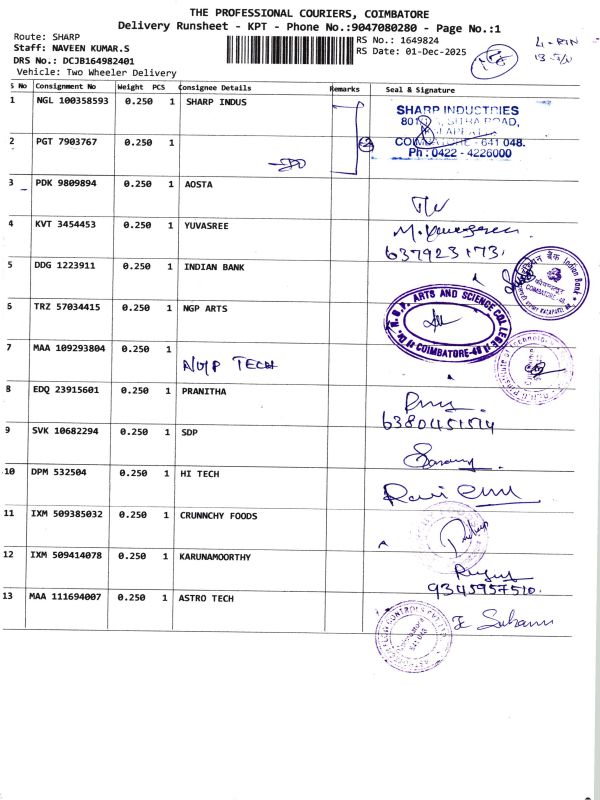 THE PROFESSIONAL COURIERS, COIMBATORE
Delivery Runsheet - KPT - Phone No.:9047080280 - Page No.:1
Route: SHARP
RS No.: 1649824
Staff: NAVEEN KUMAR.S
RS Date: 01-Dec-2025
DRS No.: DCJB164982401
Vehicle: Two Wheeler Delivery
S No Consignment No Weight PCS Consignee Details Remarks Seal & Signature
1 NGL 100358593 0.250 1 SHARP INDUS
SHARP INDUSTRIES
COIMBATORE - 641 048.
Ph : 0422 - 4226000
2 PGT 7903767 0.250 1
3 PDK 9809894 0.250 1 AOSTA
4 KVT 3454453 0.250 1 YUVASREE
5 DDG 1223911 0.250 1 INDIAN BANK
Indian Bank
COIMBATORE
6 TRZ 57034415 0.250 1 NGP ARTS
Dr. N.G.P. ARTS AND SCIENCE COLLEGE
COIMBATORE-48
7 MAA 109293804 0.250 1
NGP TECH
8 EDQ 23915601 0.250 1 PRANITHA
9 SVK 10682294 0.250 1 SDP
10 DPM 532504 0.250 1 HI TECH
11 IXM 509385032 0.250 1 CRUNNCHY FOODS
12 IXM 509414078 0.250 1 KARUNAMOORTHY
9345957510.
13 MAA 111694007 0.250 1 ASTRO TECH